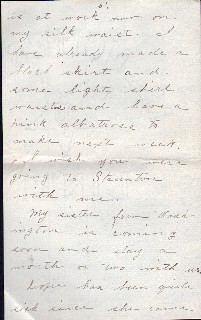 is at work now on
my silk waist. I
have already made a
skirt and
some light shirt
waists and have a
pink albatross to
make next week.
I wish you were
going to Staunton
with me.
My sister from
is coming
soon and stay a
month or two with us.
has been quite
sick since she came.